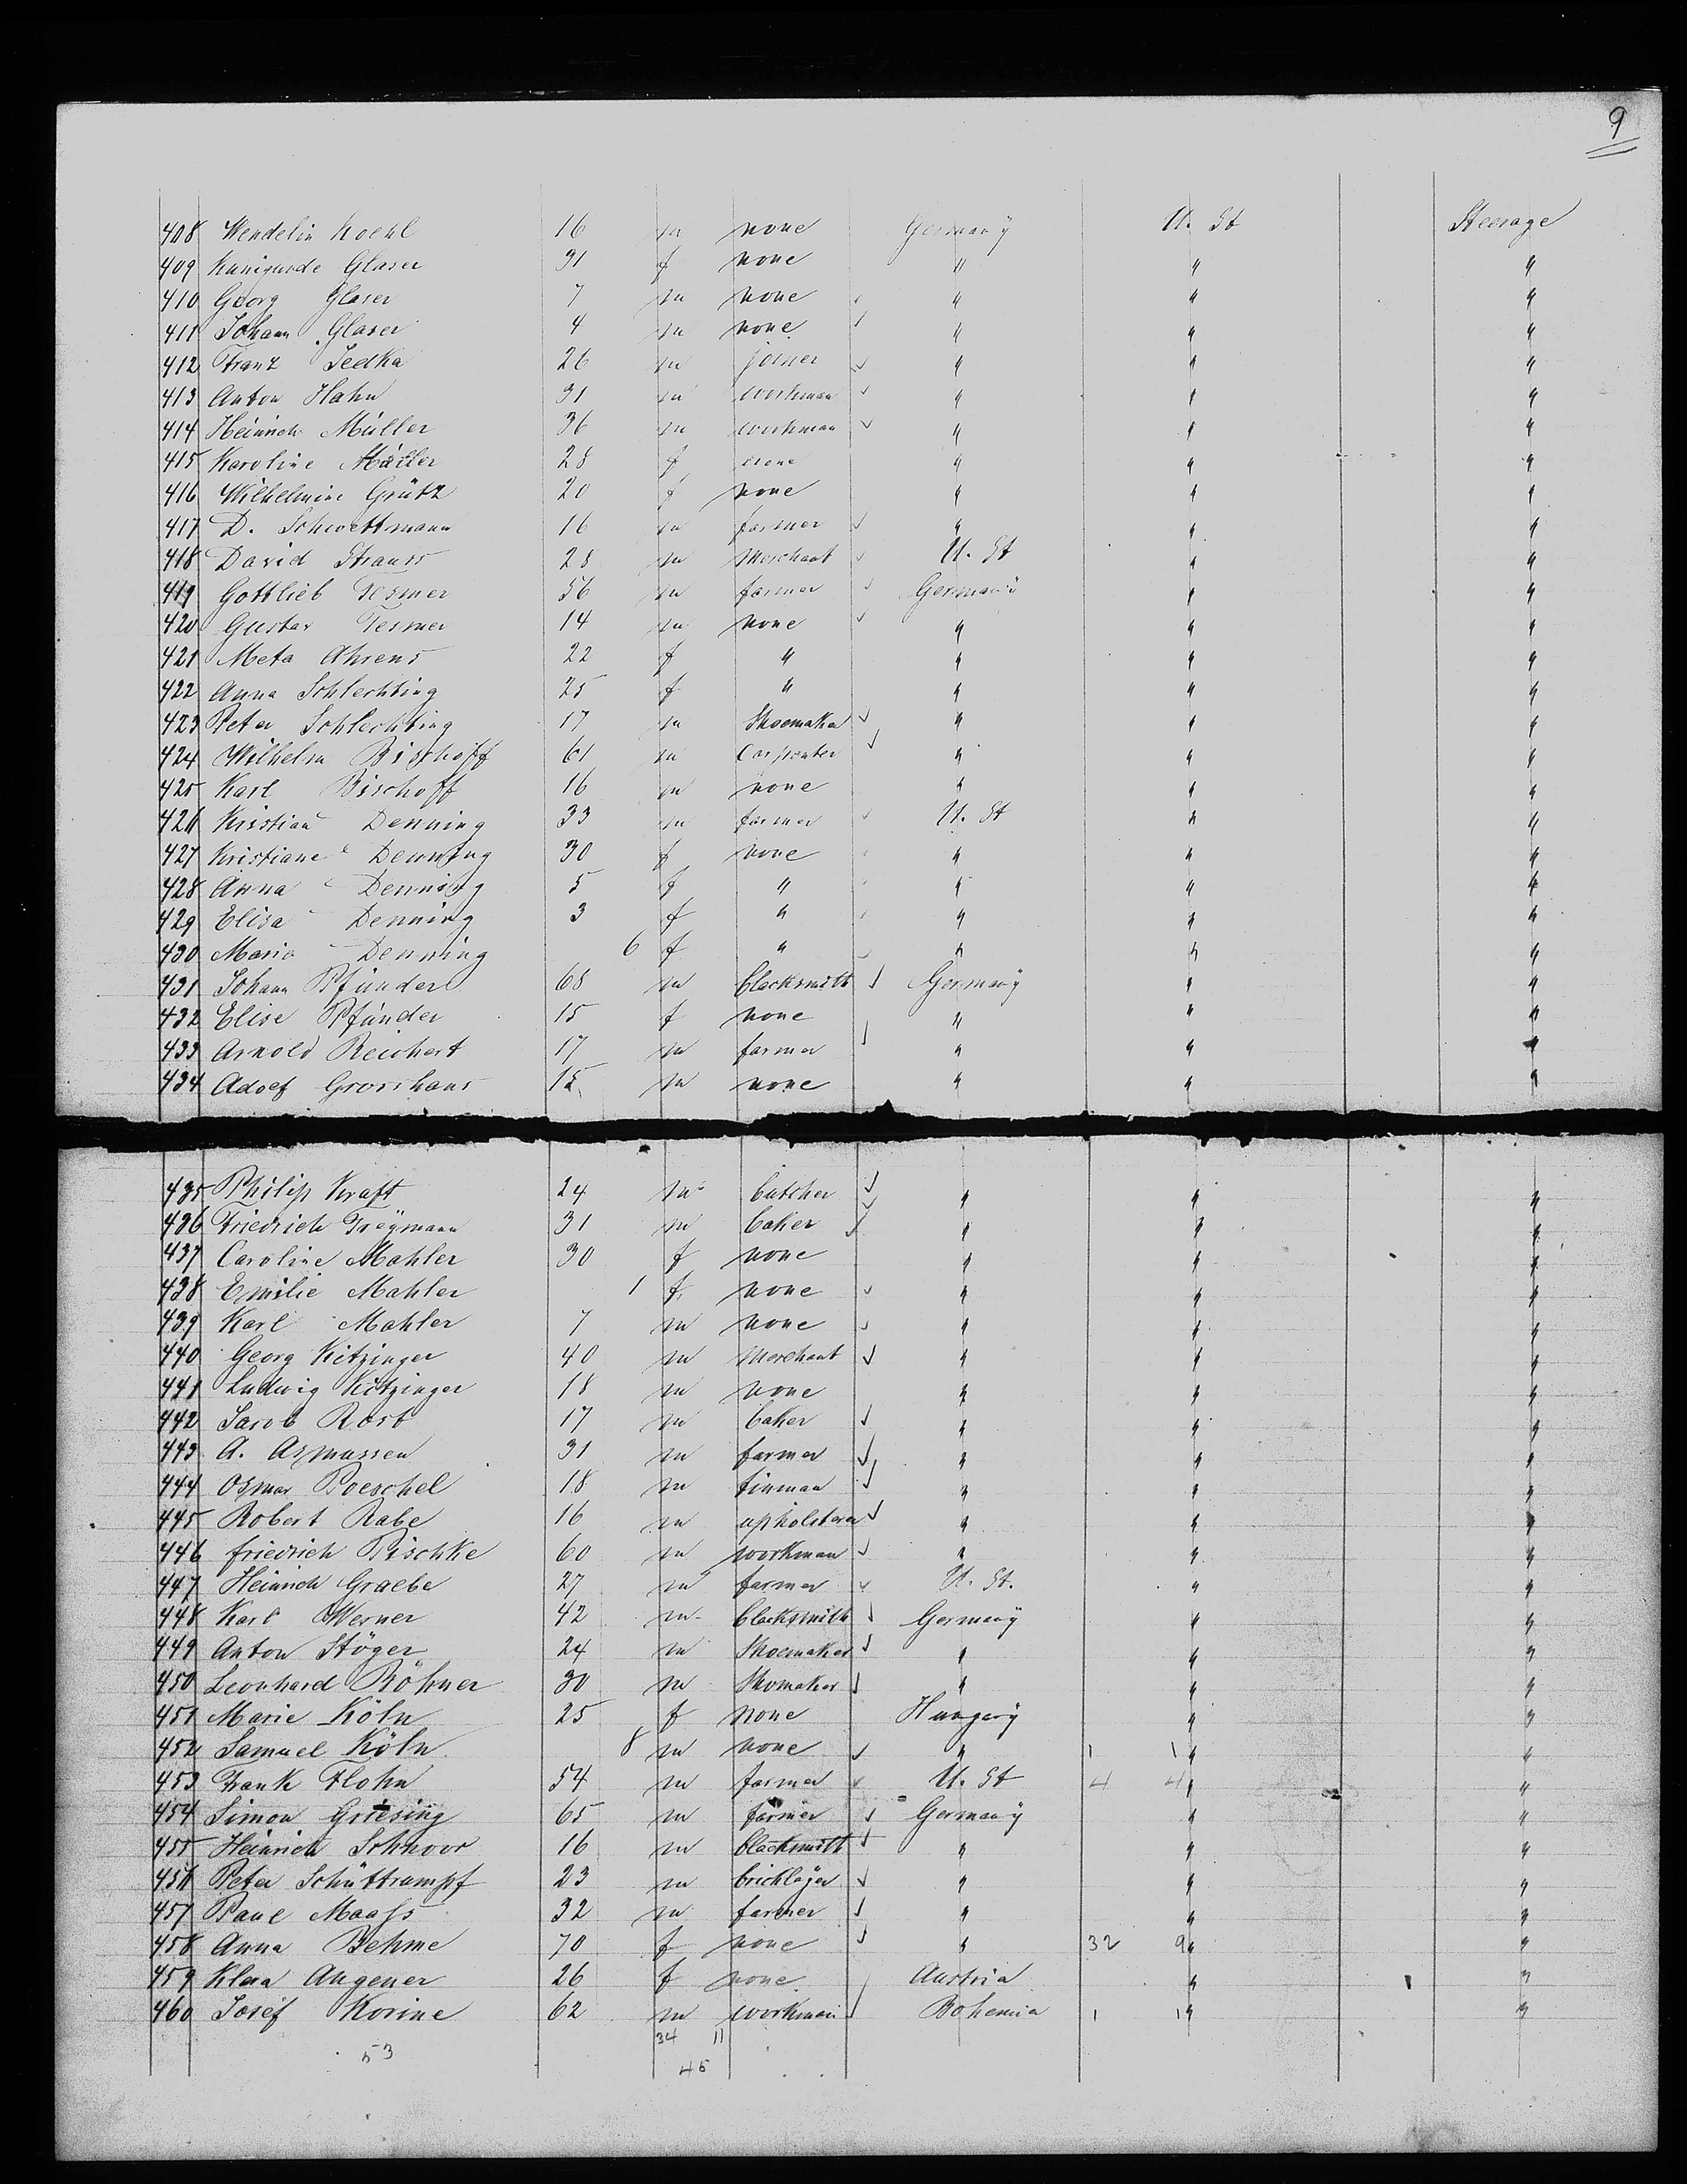 9
408 Wendelin Koehl 16 m none Germany U. St Steerage
409 Kunigunde Glaser 31 f none " " "
410 Georg Glaser 7 m none " " "
411 Johann Glaser 4 m none " " "
412 Franz Sedka 26 m joiner " " "
413 Anton Hahn 31 m workman " " "
414 Heinrich Müller 36 m workman " " "
415 Karoline Müller 28 f none " " "
416 Wilhelmine Grütz 20 f none " " "
417 D. Schwettmann 16 m farmer " " "
418 David Strauss 28 m Merchant U. St " "
419 Gottlieb Tesmer 56 m farmer Germany " "
420 Gustav Tesmer 14 m none " " "
421 Meta Ahrens 22 f " " " "
422 Anna Schlechting 25 f " " " "
423 Peter Schlechting 17 m Shoemaker " " "
424 Wilhelm Bischoff 61 m Carpenter " " "
425 Karl Bischoff 16 m none " " "
426 Kristian Denning 33 m farmer U. St " "
427 Kristiane Denning 30 f none " " "
428 Anna Denning 5 f " " " "
429 Elisa Denning 3 f " " " "
430 Maria Denning 6 f " " " "
431 Johann Pfünder 68 m blacksmith Germany " "
432 Elise Pfünder 15 f none " " "
433 Arnold Reichert 17 m farmer " " "
434 Adolf Grosshans 15 m none " " "
435 Philip Kraft 24 m butcher " " "
436 Friedrich Freymann 31 m baker " " "
437 Caroline Mahler 30 f none " " "
438 Emilie Mahler 1 f. none " " "
439 Karl Mahler 7 m none " " "
440 Georg Kitzinger 40 m Merchant " " "
441 Ludwig Kitzinger 18 m none " " "
442 Jacob Rost 17 m baker " " "
443 A. Asmussen 31 m farmer " " "
444 Osmar Poeschel 18 m tinman " " "
445 Robert Rabe 16 m upholsterer " " "
446 friedrich Pischke 60 m workman " " "
447 Heinrich Graebe 27 m farmer U. St. " "
448 Karl Werner 42 m blacksmith Germany " "
449 Anton Stöger 24 m Shoemaker " " "
450 Leonhard Böhner 30 m Shomaker " " "
451 Marie Köln 25 f none Hungary " "
452 Samuel Köln 8 m none " 1 1 " "
453 Frank Flohn 54 m farmer U. St 4 4 " "
454 Simon Griesing 65 m farmer Germany " "
455 Heinrich Schnoor 16 m blacksmith " " "
456 Peter Schüttrumpf 23 m bricklayer " " "
457 Paul Maass 32 m farmer " " "
458 Anna Behme 70 f none " 32 9 " "
459 Klara Angener 26 f none Austria " "
460 Josef Korine 62 m workman Bohemia 1 1 " "
34 11
53
45